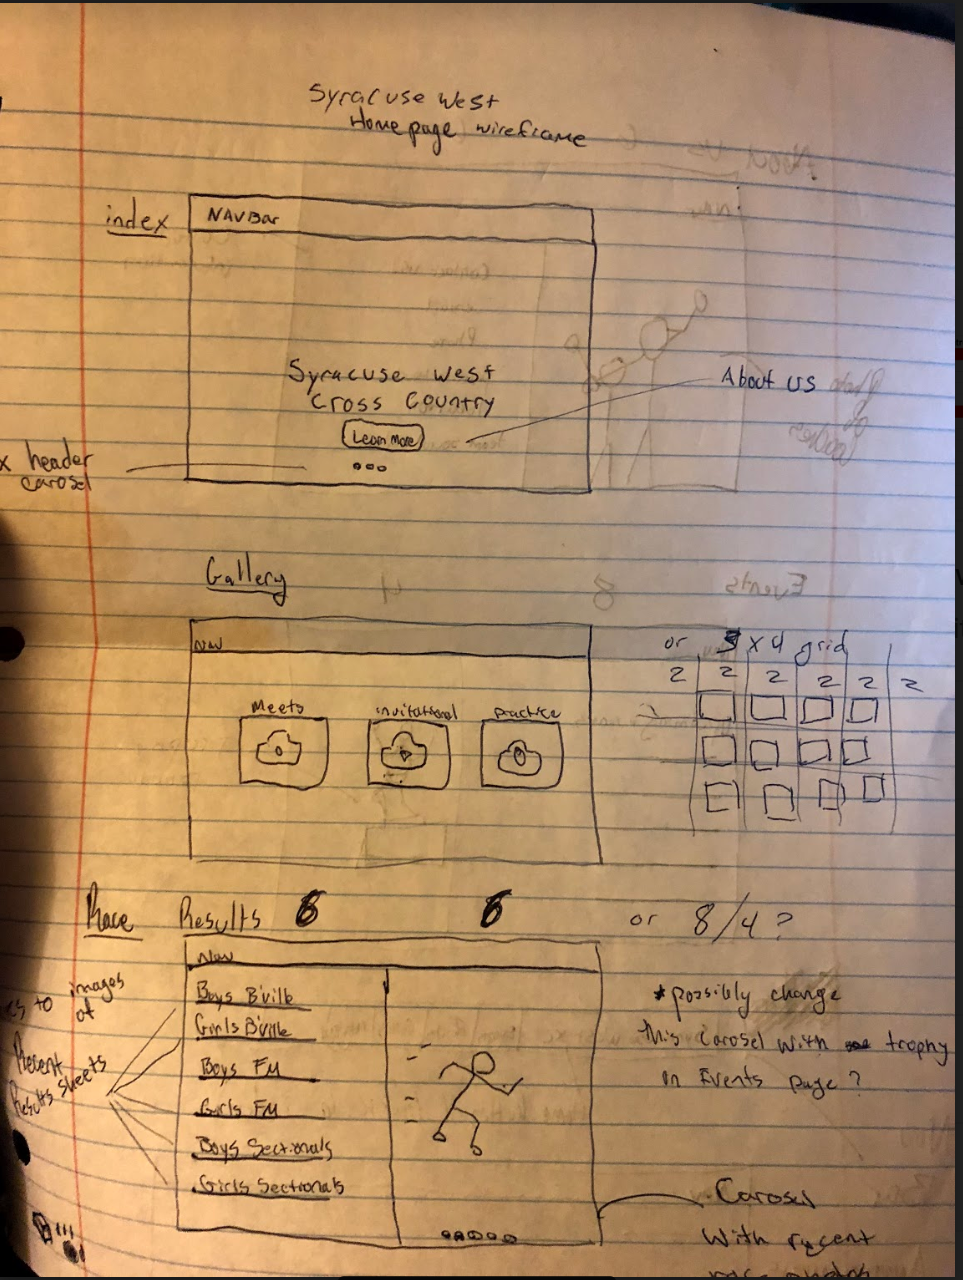 Syracuse West
Homepage wireframe
index
NAVBar
Syracuse west
Cross Country
Learn More
About us
x header
carosel
Gallery
Nav
Meets
invitational
practice
or 3 x 4 grid
2 2 2 2 2 2
Race Results 6 6 or 8/4?
Nav
Boys B'ville
Girls B'ville
Boys FM
Girls FM
Boys Sectionals
Girls Sectionals
es to images
of
Recent
Results sheets
*possibly change
this Carosel with trophy
on Events page?
Carosel
With rycent